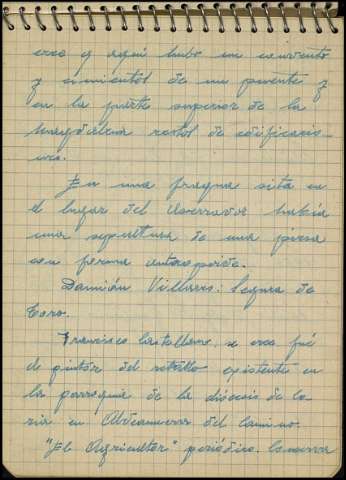 cree q aquí hubo un convento
y cimientos de un puente y
en la parte superior de la
Magdalena restos de edificacio-
nes.
En una fragua sita en
el lugar del Aserrador había
una sepultura de una pieza
con forma antropoide.
Damián Villarro: Segura de
Toro.
Francisco Castellano, se cree fué
el pintor del retablo existente en
la parroquia de la diócesis de Co-
ria en Aldeanueva del Camino.
"El Agricultor" periódico.